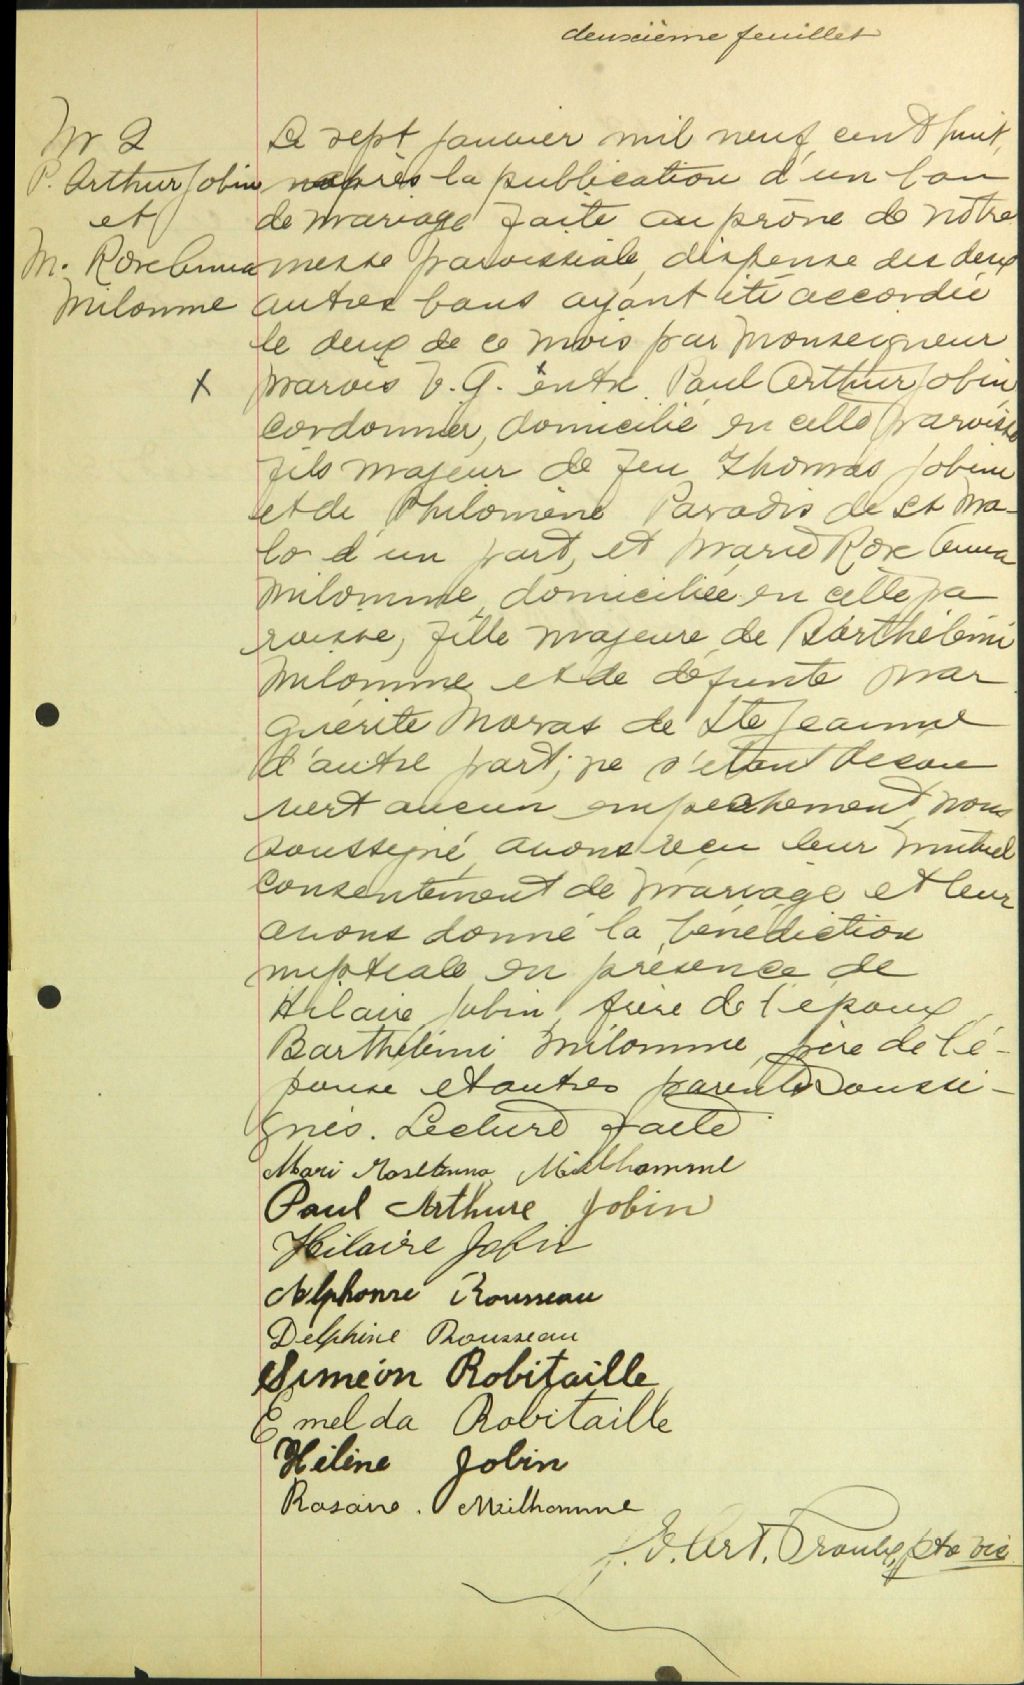 deuxième feuillet
M 2
P. Arthur Jobin
et
M. Rose Anna
Milomme
X
Le sept janvier mil neuf cent huit,
après la publication d'un ban
de mariage faite au prône de notre
messe paroissiale, dispense des deux
autres bans ayant été accordée
le deux de ce mois par Monseigneur
Marois V. G. entre Paul Arthur Jobin
cordonnier, domicilié en cette paroisse
fils majeur de feu Thomas Jobin
et de Philomène Paradis de St Ma-
lo d'un part, et Marie Rose Anna
Milomme, domiciliée en cette pa
roisse, fille majeure de Barthélémi
Milomme et de défunte Mar
guérite Moras de Ste Jeanne
d'autre part; ne s'étant décou
vert aucun empêchement, nous
soussigné, avons reçu leur mutuel
consentement de mariage et leur
avons donné la bénédiction
nuptiale en présence de
Hilaire Jobin, frère de l'époux,
Barthélémi Milomme, père de l'é-
pouse et autres parents soussi-
gnés. Lecture faite
Mari Roseanna Milhomme
Paul Arthure Jobin
Hilaire Jobin
Alphonse Rousseau
Delphine Rousseau
Siméon Robitaille
Emelda Robitaille
Hélène Jobin
Rosane. Milhomme
J. E. Art. ptre vic